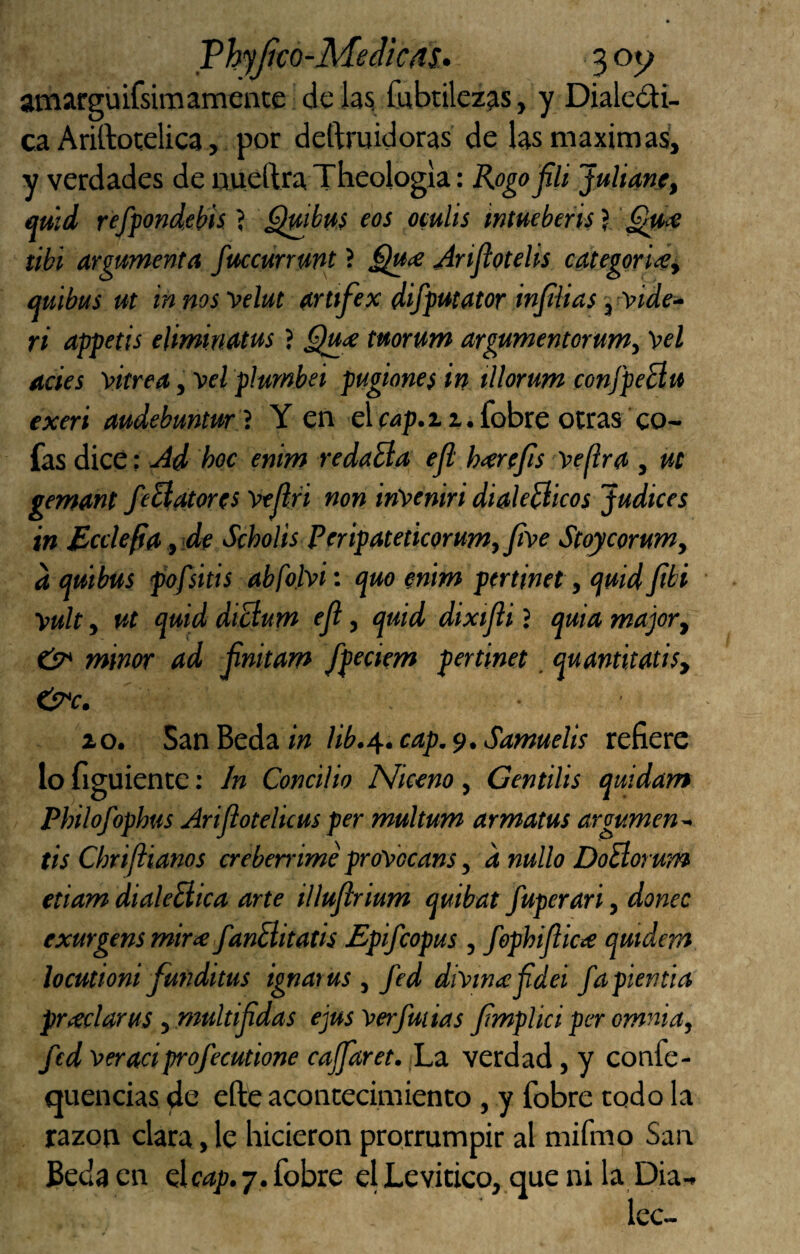 Phyſico-Medicas. 309
amarguiſsimamente de las ſubtilezas, y Dialecti-
ca Ariſtotelica, por deſtruidoras de las maximas,
y verdades de nueſtra Theologìa: Rogo fili Juliane,
quid reſpondebis? Quibus eos oculis intueberis? Quæ
tibi argumenta ſuccurrunt? Quæ Ariſtotelis categoriæ,
quibus ut in nos velut artifex diſputator inſilias, vide-
ri appetis eliminatus? Quæ tuorum argumentorum, vel
acies vitrea, vel plumbei pugiones in illorum conſpectu
exeri audebuntur? Y en el cap. 22. ſobre otras co-
ſas dice: Ad hoc enim redacta eſt hæreſis veſtra, ut
gemant ſectatores veſtri non inveniri dialecticos Judices
in Eccleſia, de Scholis Peripateticorum, ſive Stoycorum,
à quibus poſsitis abſolvi: quo enim pertinet, quid ſibi
vult, ut quid dictum eſt, quid dixiſti? quia major,
& minor ad finitam ſpeciem pertinet quantitatis,
&c.
20. San Beda in lib. 4. cap. 9. Samuelis refiere
lo ſiguiente: In Concilio Niceno, Gentilis quidam
Philoſophus Ariſtotelicus per multum armatus argumen-
tis Chriſtianos creberrimè provocans, à nullo Doctorum
etiam dialectica arte illuſtrium quibat ſuperari, donec
exurgens miræ ſanctitatis Epiſcopus, ſophiſticæ quidem
locutioni funditus ignarus, ſed divinæ fidei ſapientia
præclarus, multifidas ejus verſutias ſimplici per omnia,
ſed veraci proſecutione caſſaret. La verdad, y conſe-
quencias de eſte acontecimiento, y ſobre todo la
razon clara, le hicieron prorrumpir al miſmo San
Beda en el cap. 7. ſobre el Levitico, que ni la Dia-
lec-